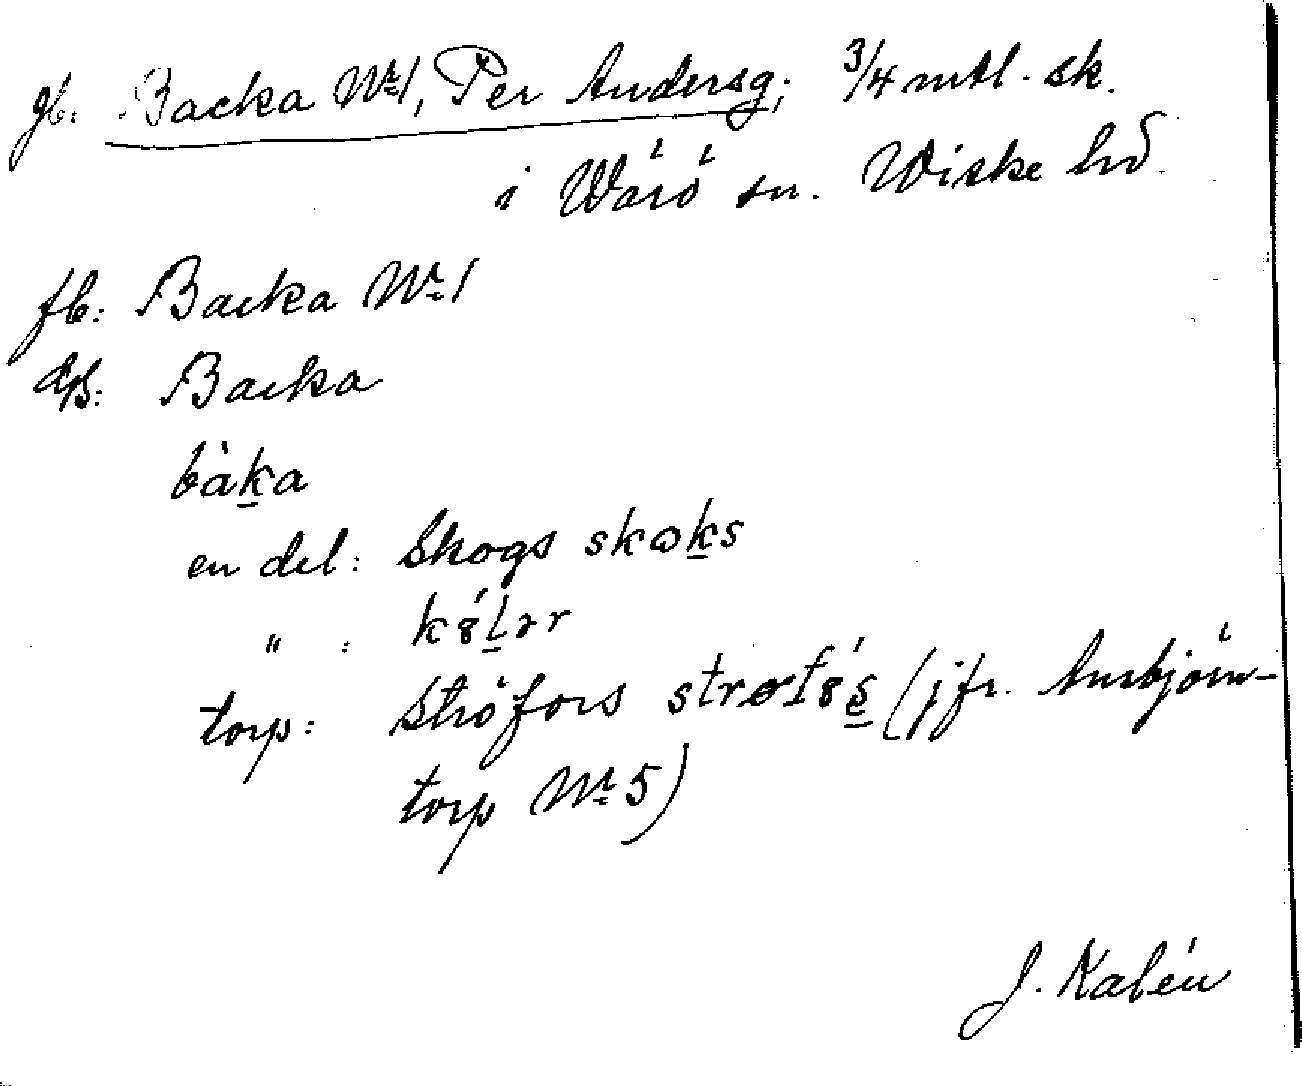 gb: Backa Nr 1, Per Andersg; 3/4 mtl. sk.
i Wärö sn. Wiske hd.
fb: Backa Nr 1
Backa
bàka
en del: Skogs skoks
" :
torp: Ströfors (jfr. Ambjörn-
torp Nr 5)
J. Kalén